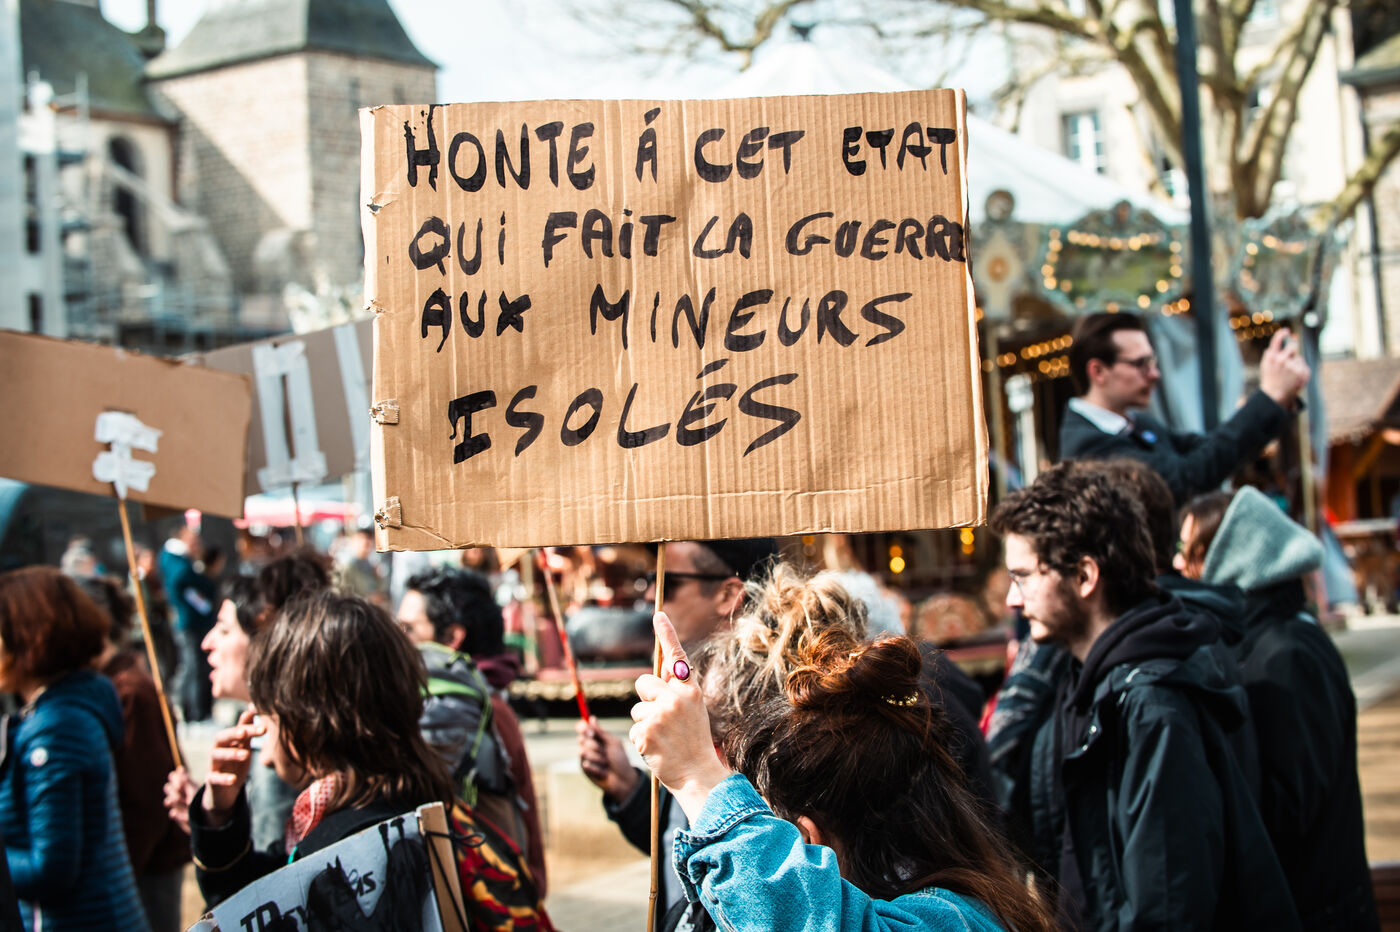 HONTE Á CET ETAT
QUi FAiT LA GUERRE
AUX MINEURS
ISOLÉS